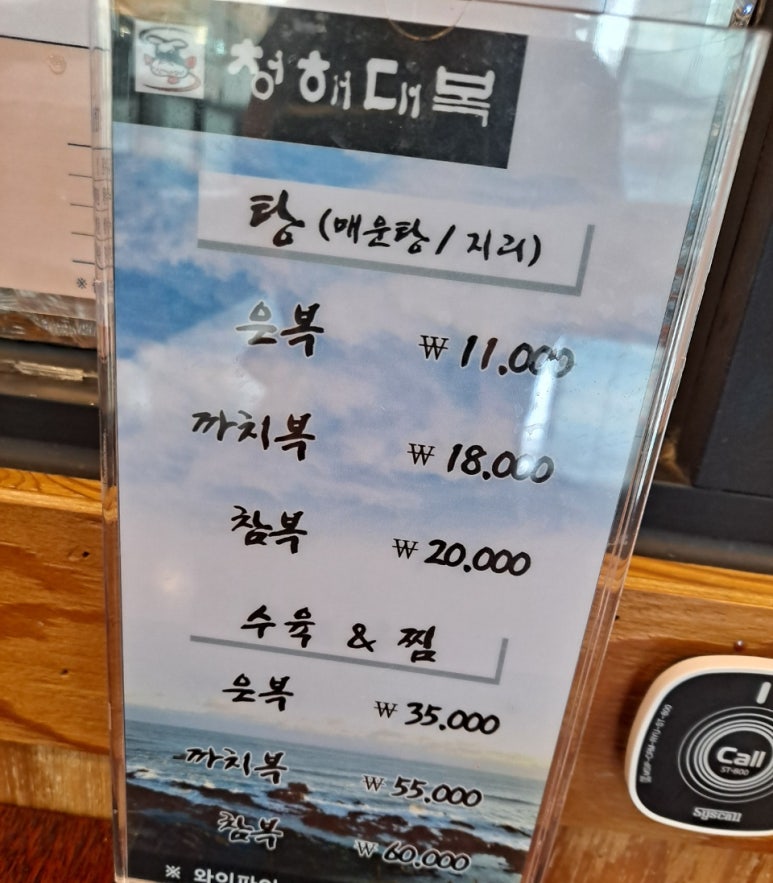 청해대복
탕 (매운탕 / 지리)
은복 ₩ 11.000
까치복 ₩ 18.000
참복 ₩ 20.000
수육 & 찜
은복 ₩ 35.000
까치복 ₩ 55.000
참복 ₩ 60.000
※ 와이파이
※
Call
ST-800
Syscall